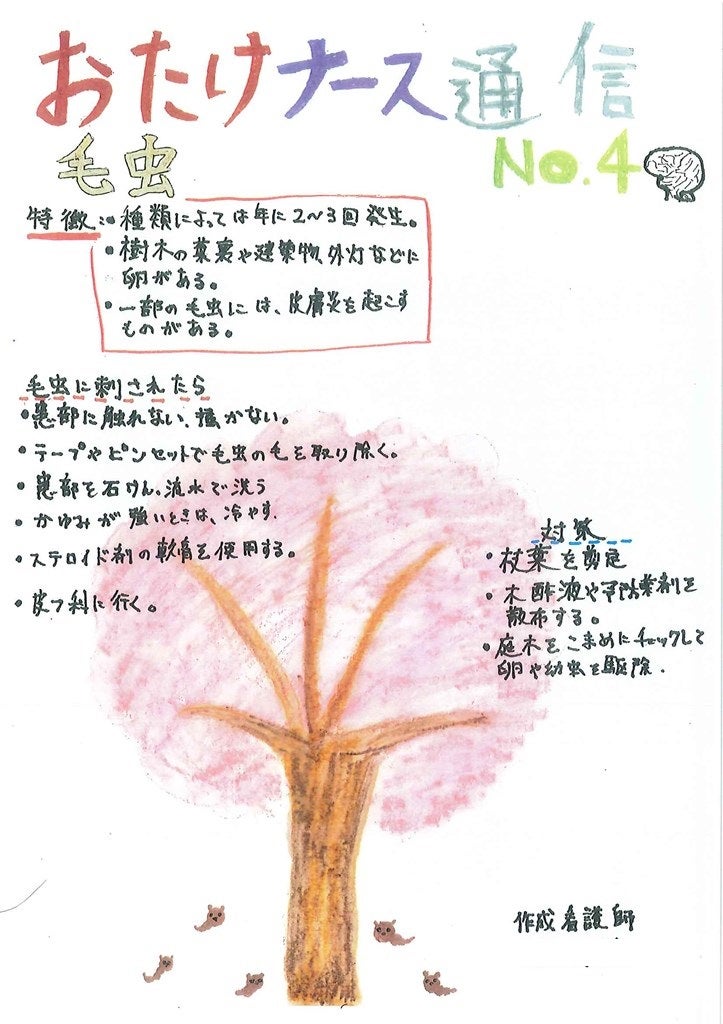 おたけナース通信
毛虫
No.4
特徴:・種類によっては年に2〜3回発生。
・樹木の葉裏や建築物、外灯などに
卵がある。
・一部の毛虫には、皮膚炎を起こす
ものがある。
毛虫に刺されたら
・患部に触れない、掻かない。
・テープやピンセットで毛虫の毛を取り除く。
・患部を石けん、流水で洗う
・かゆみが強いときは、冷やす.
・ステロイド剤の軟膏を使用する。
・皮フ科に行く。
対策
・枝葉を剪定
・木酢液や予防薬剤を
散布する。
・庭木をこまめにチェックして
卵や幼虫を駆除.
作成看護師